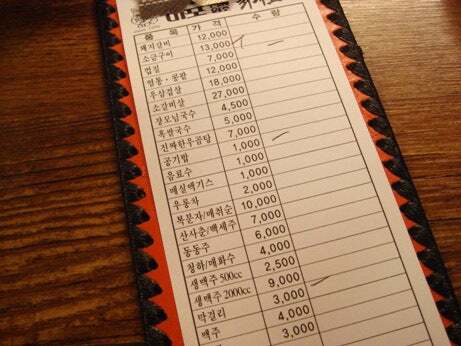 품 목 가 격 수 량
돼지갈비 12,000
소금구이 13,000
껍질 7,000
염통·콩팥 12,000
우삼겹살 18,000
소갈비살 27,000
장모님국수 4,500
흑쌀국수 5,000
진짜한우곰탕 7,000
공기밥 1,000
음료수 1,000
매실엑기스 1,000
우롱차 2,000
복분자/매취순 10,000
산사춘/백세주 7,000
동동주 6,000
청하/매화수 4,000
생맥주 500cc 2,500
생맥주 2000cc 9,000
막걸리 3,000
맥주 3,000